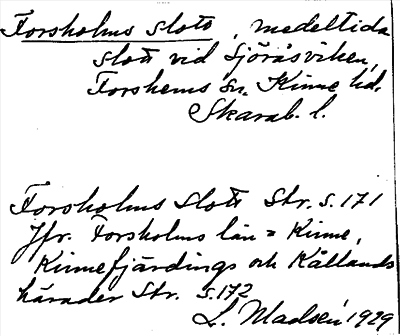 Forsholms slott, medeltida
slott vid Sjöråsviken,
Forshems sn. Kinne hd.
Skarab. l.
Forsholms slott Str. s. 171
Jfr. Forsholms län = Kinne,
Kinnefjärdings och Kållands
härader Str. s. 172
L. Madsén 1929